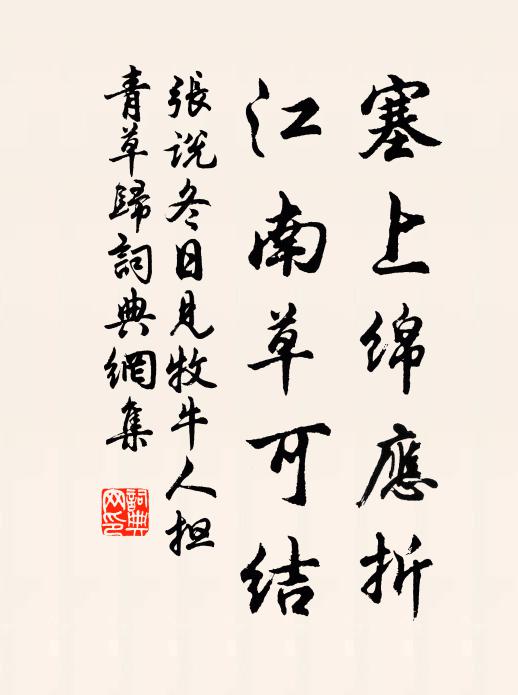 塞上綿應折
江南草可結
張説冬日見牧牛人担
青草歸詞典網集
詞典
网印